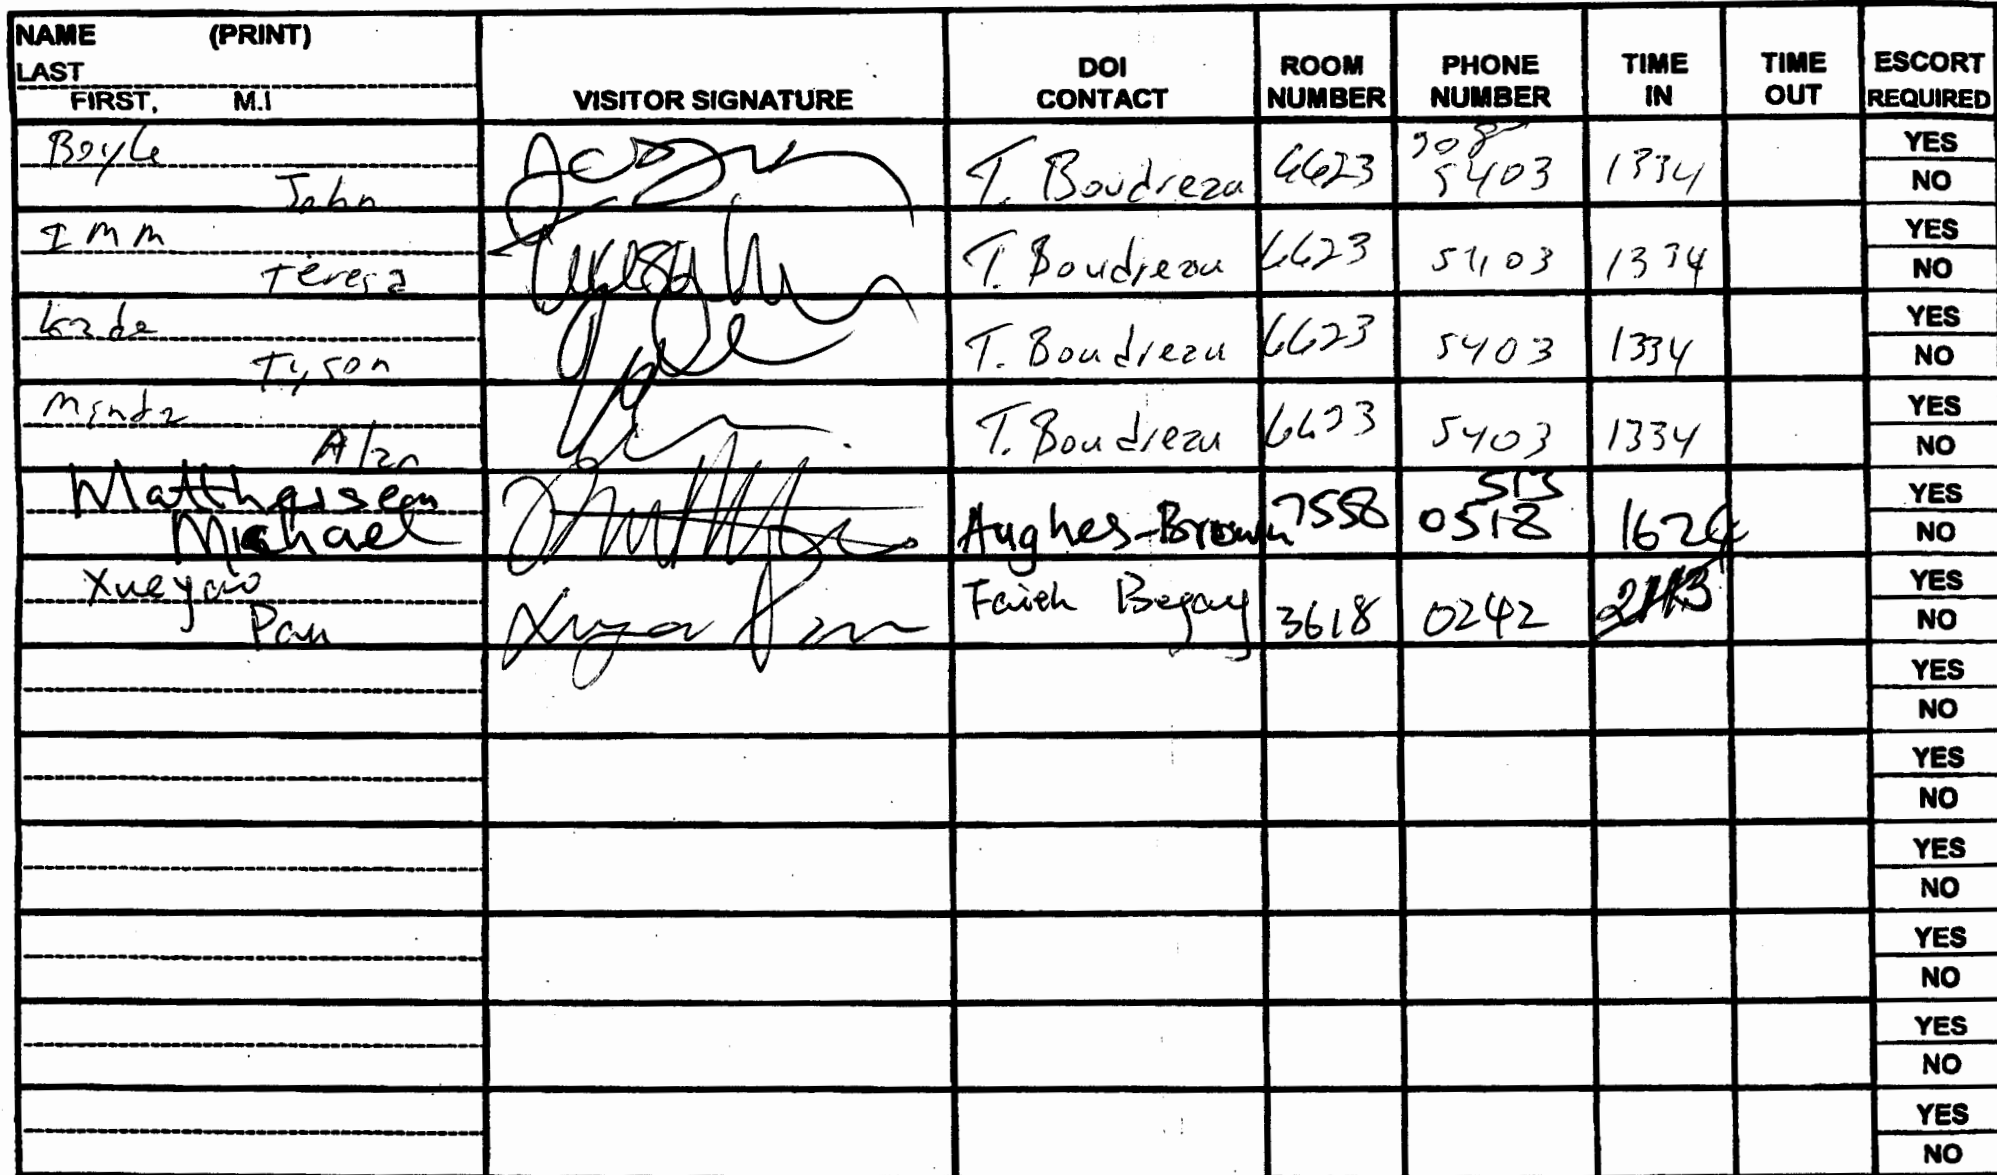 NAME (PRINT)
LAST
FIRST, M.I
VISITOR SIGNATURE
DOI CONTACT
ROOM NUMBER
PHONE NUMBER
TIME IN
TIME OUT
ESCORT REQUIRED
Boyle
John
T. Boudreau 6623 208 5403 1334 YES NO
Imm
Teresa
T. Boudreau 6623 5403 1334 YES NO
Kade
Tyson
T. Boudreau 6623 5403 1334 YES NO
Mintz
Alan
T. Boudreau 6623 5403 1334 YES NO
Michael
Hughes-Brown 7558 513 0518 YES NO
Xueyao
Pan
Faith Begay 3618 0242 YES NO
YES NO
YES NO
YES NO
YES NO
YES NO
YES NO